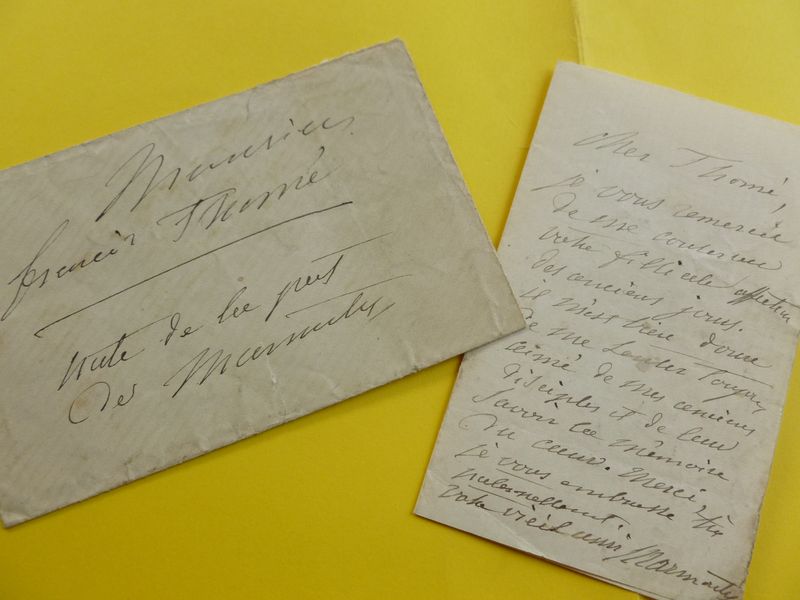 Monsieur
francis Thomé
note de la part
de Marmontel
Cher Thomé,
je vous remercie
de me conserver
votre filliale affection
des anciens jours.
il m'est bien doux
de me sentir toujours
aimé de mes anciens
disciples et de leur
savoir la mémoire
du cœur. Merci
je vous embrasse
paternellement.
votre vieil ami Marmontel